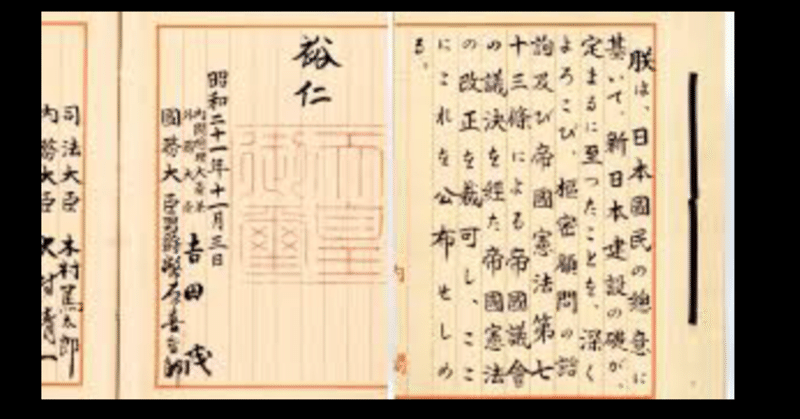 朕は、日本國民の總意に
基いて、新日本建設の礎が、
定まるに至つたことを、深く
よろこび、樞密顧問の諮
詢及び帝國憲法第七
十三條による帝國議會
の議決を經た帝國憲法
の改正を裁可し、ここ
にこれを公布せしめ
る。
内閣
裕仁
天皇御璽
昭和二十一年十一月三日
内閣總理大臣兼
外務大臣 吉田茂
國務大臣 男爵幣原喜重郎
司法大臣 木村篤太郎
内務大臣 大村清一